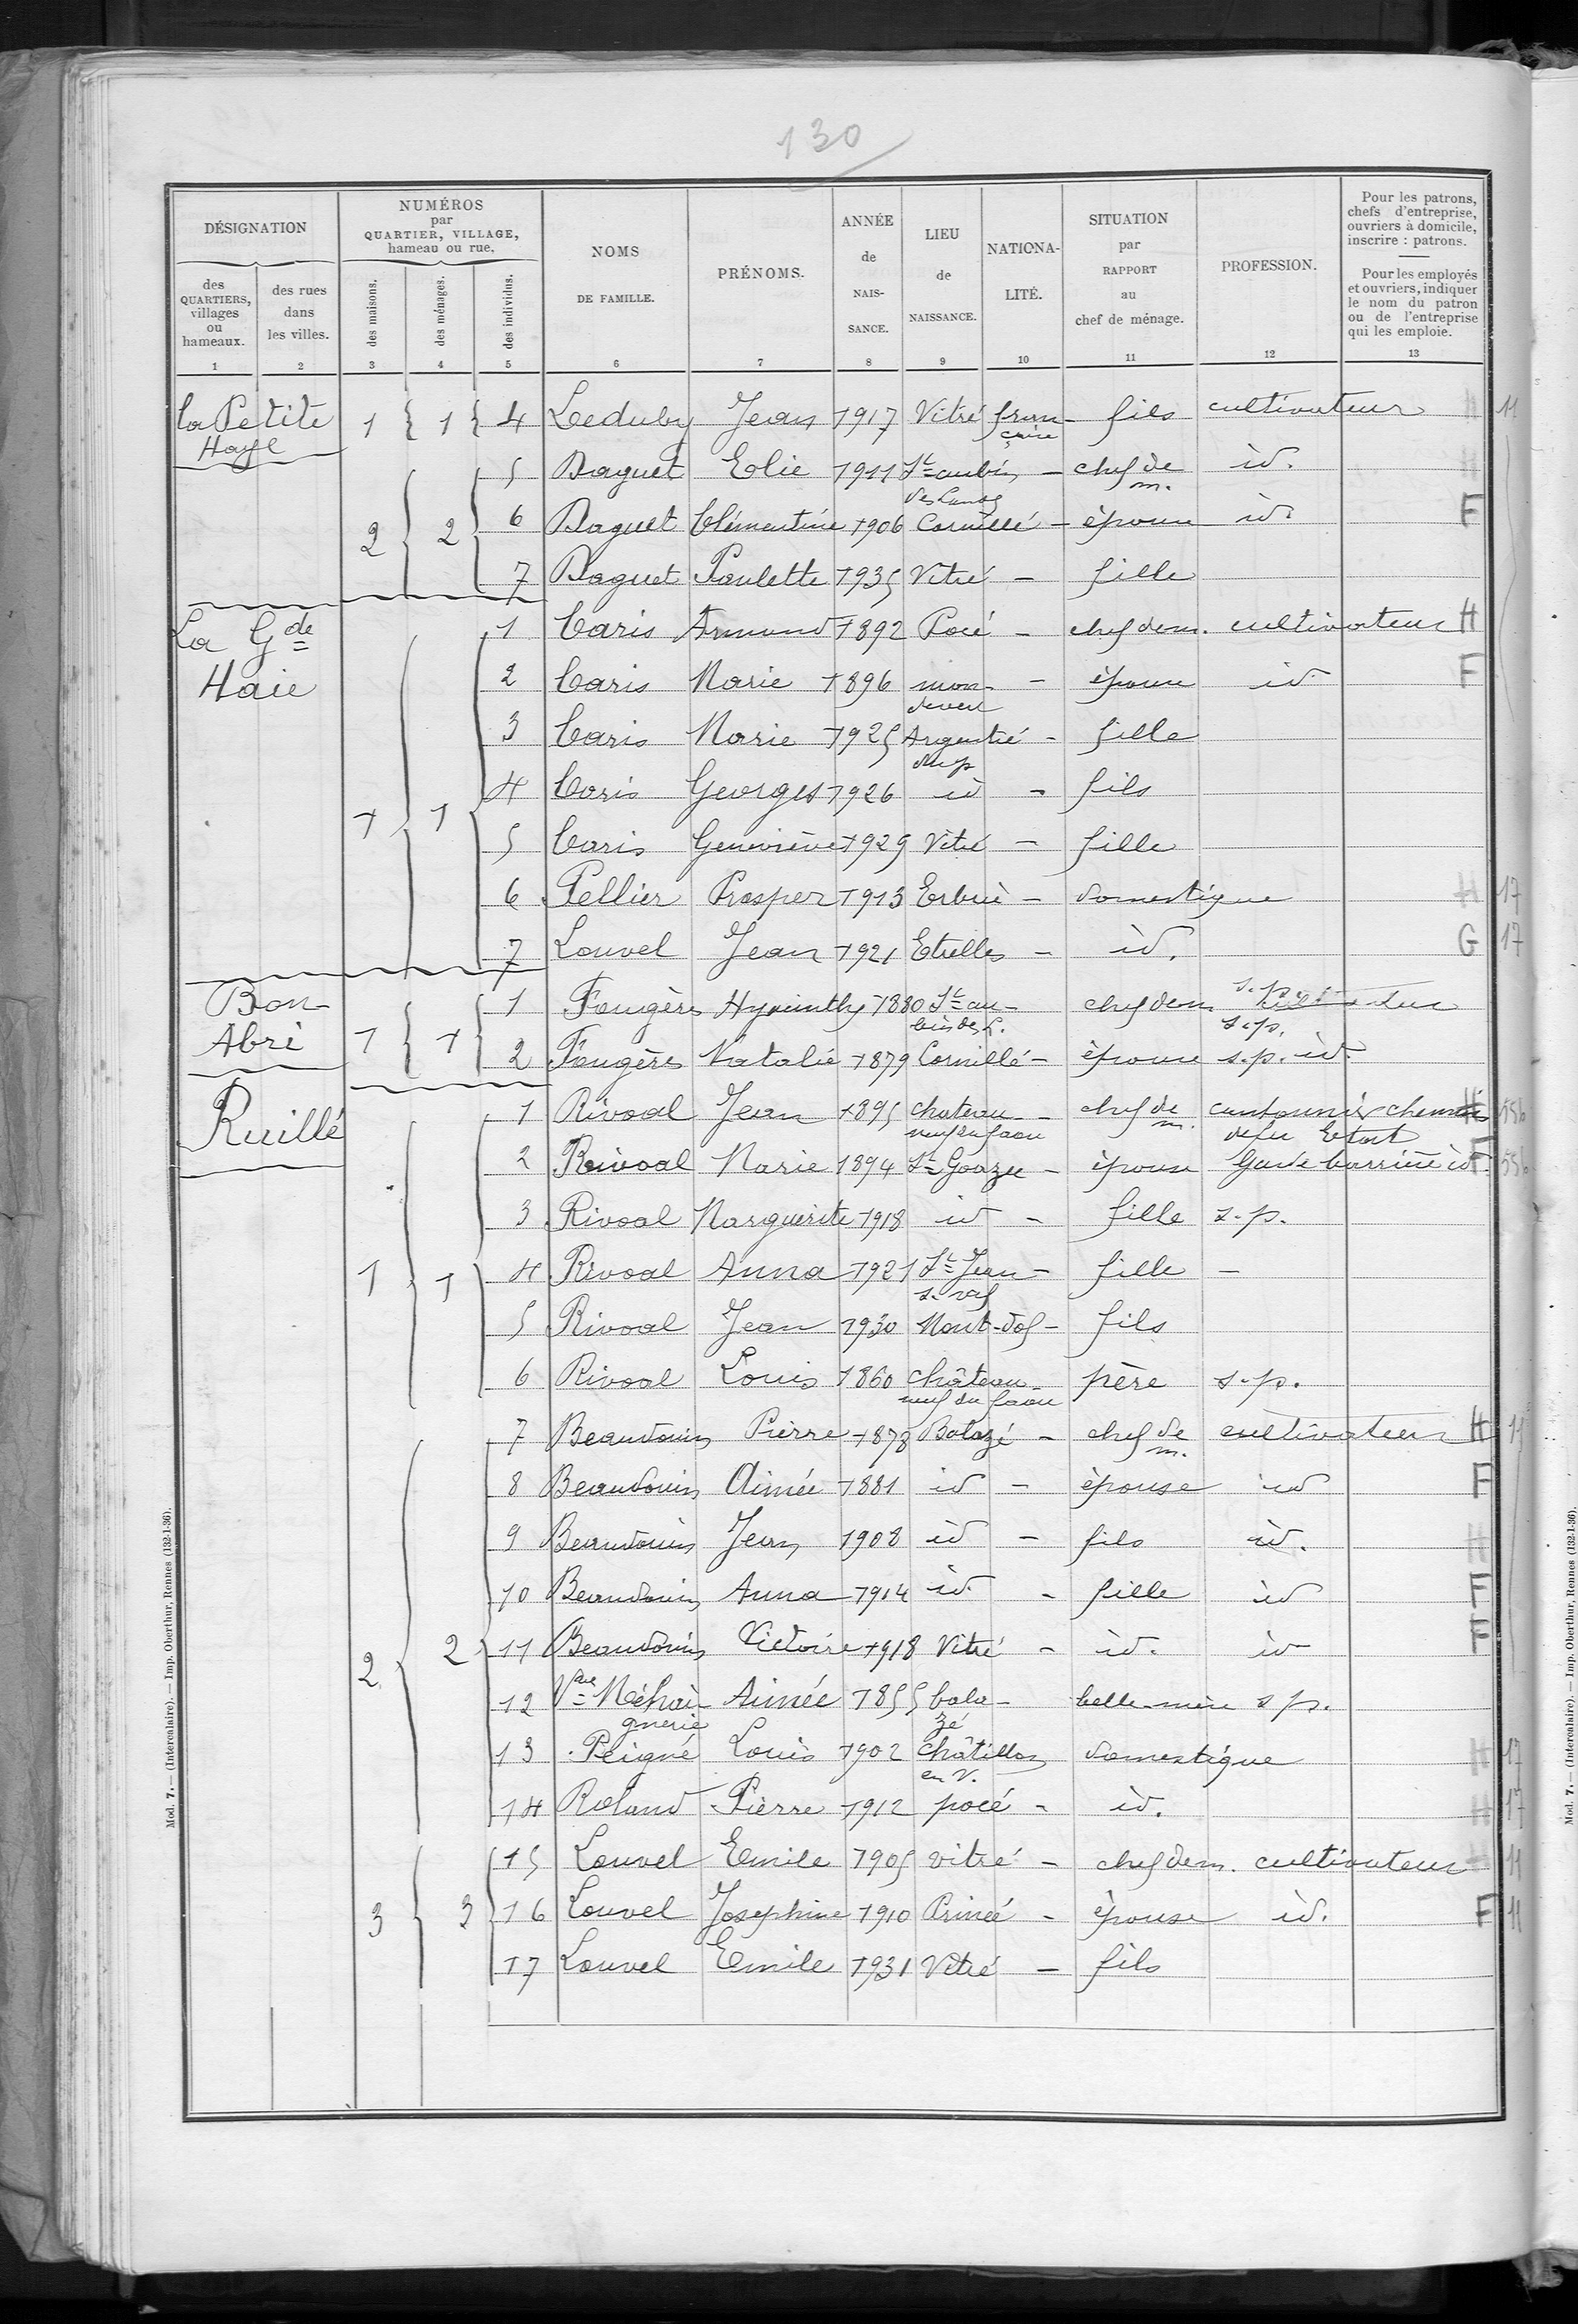 130
DÉSIGNATION
des QUARTIERS, villages ou hameaux.
des rues dans les villes.
NUMÉROS par QUARTIER, VILLAGE, hameau ou rue.
des maisons.
des ménages.
des individus.
NOMS DE FAMILLE.
PRÉNOMS.
ANNÉE de NAIS-SANCE.
LIEU de NAISSANCE.
NATIONA-LITÉ.
SITUATION par RAPPORT au chef de ménage.
PROFESSION.
Pour les patrons, chefs d'entreprise, ouvriers à domicile, inscrire : patrons.
Pour les employés et ouvriers, indiquer le nom du patron ou de l'entreprise qui les emploie.
1 2 3 4 5 6 7 8 9 10 11 12 13
la Petite Haye 1 1 4 Leduby Jean 1917 Vitré fran-çaise fils cultivateur H 11
2 2 5 Daguet Elie 1911 St aubin des Landes - chef de m. id. H
6 Daguet Clémentine 1906 Cornillé - épouse id. F
7 Daguet Paulette 1935 Vitré - fille
La Gde Haie 1 1 1 Caris Armand 1892 Pocé - chef de m. cultivateur H
2 Caris Marie 1896 mon-devert - épouse id F
3 Caris Marie 1925 Argentré du p - fille
4 Caris Georges 1926 id - fils
5 Caris Geneviève 1929 Vitré - fille
6 Pellier Prosper 1913 Erbrée - domestique H 17
7 Louvel Jean 1921 Etrelles - id. G 17
Bon-Abri 1 1 1 Fougères Hyacinthe 1880 St au-bin des L. chef de m s.p. s.p.
2 Fougères Natalie 1879 Cornillé - épouse s.p. id.
Ruillé 1 1 1 Rivoal Jean 1895 chateau-neuf du faou - chef de m. cantonnier chemin de fer Etat H 556
2 Rivoal Marie 1894 St Goazec - épouse Garde barrière id. F 556
3 Rivoal Marguerite 1918 id - fille s.p.
4 Rivoal Anna 1921 St Jean s. vil - fille -
5 Rivoal Jean 1930 Mont-dol - fils
6 Rivoal Louis 1860 château-neuf du faou - père s.p.
2 2 7 Beaudouin Pierre 1878 Balazé - chef de m. cultivateur H 11
8 Beaudouin Aimée 1881 id - épouse id F
9 Beaudouin Jean 1908 id - fils id. H
10 Beaudouin Anna 1914 id. - fille id F
11 Beaudouin Victoire 1918 Vitré - id. id F
12 Vve Méhai-gnerie Aimée 1855 bala-zé - belle-mère s p.
13 Peigné Louis 1902 châtillon en V. domestique H 17
14 Roland Pierre 1912 pocé - id. H 17
3 3 15 Louvel Emile 1905 vitré - chef de m. cultivateur H 11
16 Louvel Josephine 1910 Princé - épouse id. F 11
17 Louvel Emile 1931 Vitré - fils
Mod. 7. — (Intercalaire). — Imp. Oberthur, Rennes (132-1-36).
Mod. 7. — (Intercalaire). — Imp. Oberthur, Rennes (132-1-36).